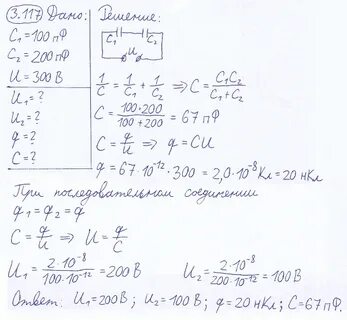 3.117 Дано: Решение:
C₁ = 100 пФ
C₂ = 200 пФ
U = 300 В
U₁ = ?
U₂ = ?
q = ?
C = ?
C₁ C₂
U
1/C = 1/C₁ + 1/C₂ ⇒ C = C₁C₂/(C₁ + C₂)
C = 100·200/(100 + 200) = 67 пФ
C = q/U ⇒ q = CU
q = 67·10⁻¹²·300 = 2,0·10⁻⁸ Кл = 20 нКл
При последовательном соединении
q₁ = q₂ = q
C = q/U ⇒ U = q/C
U₁ = 2·10⁻⁸/(100·10⁻¹²) = 200 В U₂ = 2·10⁻⁸/(200·10⁻¹²) = 100 В
Ответ: U₁ = 200 В; U₂ = 100 В; q = 20 нКл; C = 67 пФ.